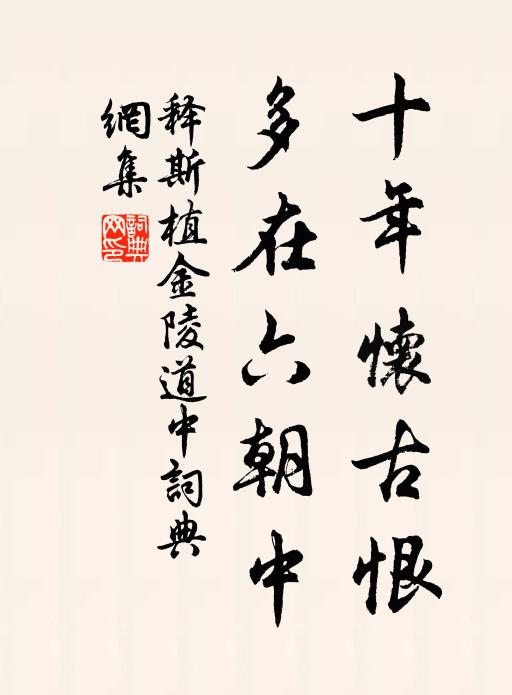 十年懷古恨
多在六朝中
释斯植金陵道中詞典
網集
詞典網印